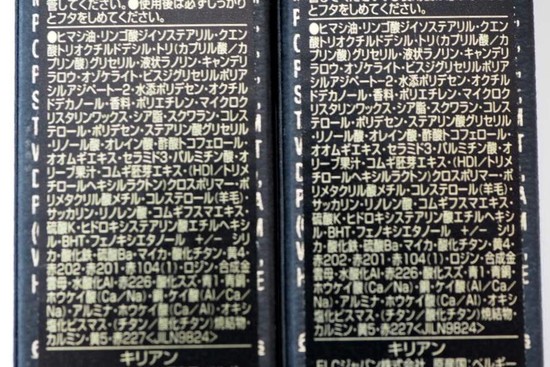 管してください。●使用後は必ずしっかり
とフタをしめてください。
●ヒマシ油・リンゴ酸ジイソステアリル・クエン
酸トリオクチルドデシル・トリ(カプリル酸/カ
プリン酸)グリセリル・液状ラノリン・キャンデリ
ラロウ・オゾケライト・ビスジグリセリルポリア
シルアジペート-2・水添ポリデセン・オクチル
ドデカノール・香料・ポリエチレン・マイクロク
リスタリンワックス・シア脂・スクワラン・コレス
テロール・ポリデセン・ステアリン酸グリセリル
・リノール酸・オレイン酸・酢酸トコフェロール・
オオムギエキス・セラミド3・パルミチン酸・オ
リーブ果汁・コムギ胚芽エキス・(HDI/トリメ
チロールヘキシルラクトン)クロスポリマー・ポ
リメタクリル酸メチル・コレステロール(羊毛)・
サッカリン・リノレン酸・コムギフスマエキス・
硫酸K・ヒドロキシステアリン酸エチルヘキシ
ル・BHT・フェノキシエタノール +/- シリ
カ・酸化鉄・硫酸Ba・マイカ・酸化チタン・黄4・
赤202・赤201・赤104(1)・ロジン・合成金
雲母・水酸化Al・赤226・酸化スズ・青1・青銅・
ホウケイ酸(Ca/Na)・銅・ケイ酸(Al/Ca/
Na)・アルミナ・ホウケイ酸(Ca/Al)・オキシ
塩化ビスマス・(チタン/酸化チタン)焼結物・
カルミン・黄5・赤227<JILN9824>
キリアン
とフタをしめてください。
●ヒマシ油・リンゴ酸ジイソステアリル・クエン
酸トリオクチルドデシル・トリ(カプリル酸/カ
プリン酸)グリセリル・液状ラノリン・キャンデリ
ラロウ・オゾケライト・ビスジグリセリルポリア
シルアジペート-2・水添ポリデセン・オクチル
ドデカノール・香料・ポリエチレン・マイクロク
リスタリンワックス・シア脂・スクワラン・コレス
テロール・ポリデセン・ステアリン酸グリセリル
・リノール酸・オレイン酸・酢酸トコフェロール・
オオムギエキス・セラミド3・パルミチン酸・オ
リーブ果汁・コムギ胚芽エキス・(HDI/トリメ
チロールヘキシルラクトン)クロスポリマー・ポ
リメタクリル酸メチル・コレステロール(羊毛)・
サッカリン・リノレン酸・コムギフスマエキス・
硫酸K・ヒドロキシステアリン酸エチルヘキシ
ル・BHT・フェノキシエタノール +/- シリ
カ・酸化鉄・硫酸Ba・マイカ・酸化チタン・黄4・
赤202・赤201・赤104(1)・ロジン・合成金
雲母・水酸化Al・赤226・酸化スズ・青1・青銅・
ホウケイ酸(Ca/Na)・銅・ケイ酸(Al/Ca/
Na)・アルミナ・ホウケイ酸(Ca/Al)・オキシ
塩化ビスマス・(チタン/酸化チタン)焼結物・
カルミン・黄5・赤227<JILN9824>
キリアン
ELCジャパン株式会社 原産国:ベルギー